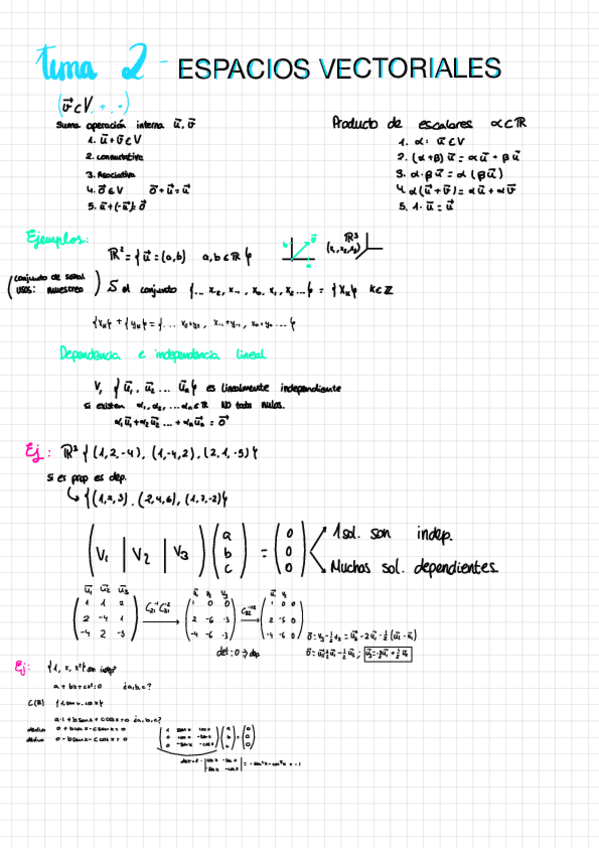 Tema 2 - ESPACIOS VECTORIALES
(v⃗ ⊂ V, +, ·)
Suma operación interna u⃗, v⃗
1. u⃗ + v⃗ ∈ V
2. conmutativa
3. Asociativa
4. 0⃗ ∈ V 0⃗ + u⃗ = u⃗
5. u⃗ + (-u⃗) = 0⃗
Producto de escalares α ⊂ ℝ
1. α · u⃗ ∈ V
2. (α + β) u⃗ = α u⃗ + β u⃗
3. α · β u⃗ = α (β u⃗)
4. α (u⃗ + v⃗) = α u⃗ + α v⃗
5. 1 · u⃗ = u⃗
Ejemplos:
ℝ² = { u⃗ = (a, b) a, b ∈ ℝ }
b v⃗ a
ℝ³
(x₁, x₂, x₃)
(conjunto de señal
usos: muestreo)
S el conjunto {... x₋₂, x₋₁, x₀, x₁, x₂ ...} = {xₖ} k ∈ ℤ
{xₖ} + {yₖ} = {... x₋₂+y₋₂, x₋₁+y₋₁, x₀+y₀ ...}
Dependencia e independencia lineal
V, {u⃗₁, u⃗₂ ... u⃗ₙ} es linealmente independiente
si existen α₁, α₂, ... αₙ ∈ ℝ NO todos nulos.
α₁u⃗₁ + α₂u⃗₂ ... + αₙu⃗ₙ = 0⃗
Ej: ℝ³ {(1, 2, -4), (1, -4, 2), (2, 1, -5)}
Si es prop es dep.
↳ {(1, 2, 3), (2, 4, 6), (1, 7, -2)}
(V₁ | V₂ | V₃) (a b c) = (0 0 0)
1 sol. son indep.
Muchas sol. dependientes
u⃗₁ u⃗₂ u⃗₃
1 1 2
2 -4 1
-4 2 -5
1 0 0
2 -6 -3
-4 -6 3
det: 0 ⇒ dep
Ej: {1, x, x²} son indep?
a + bx + cx² = 0 ¿a, b, c?
C(ℝ) {1, sen x, cos x}
a·1 + b sen x + c cos x = 0 ¿a, b, c?
derivo 0 + b cos x - c sen x = 0
derivo 0 - b sen x - c cos x = 0
1 sen x cos x
0 cos x -sen x
0 -sen x -cos x
(a b c) = (0 0 0)